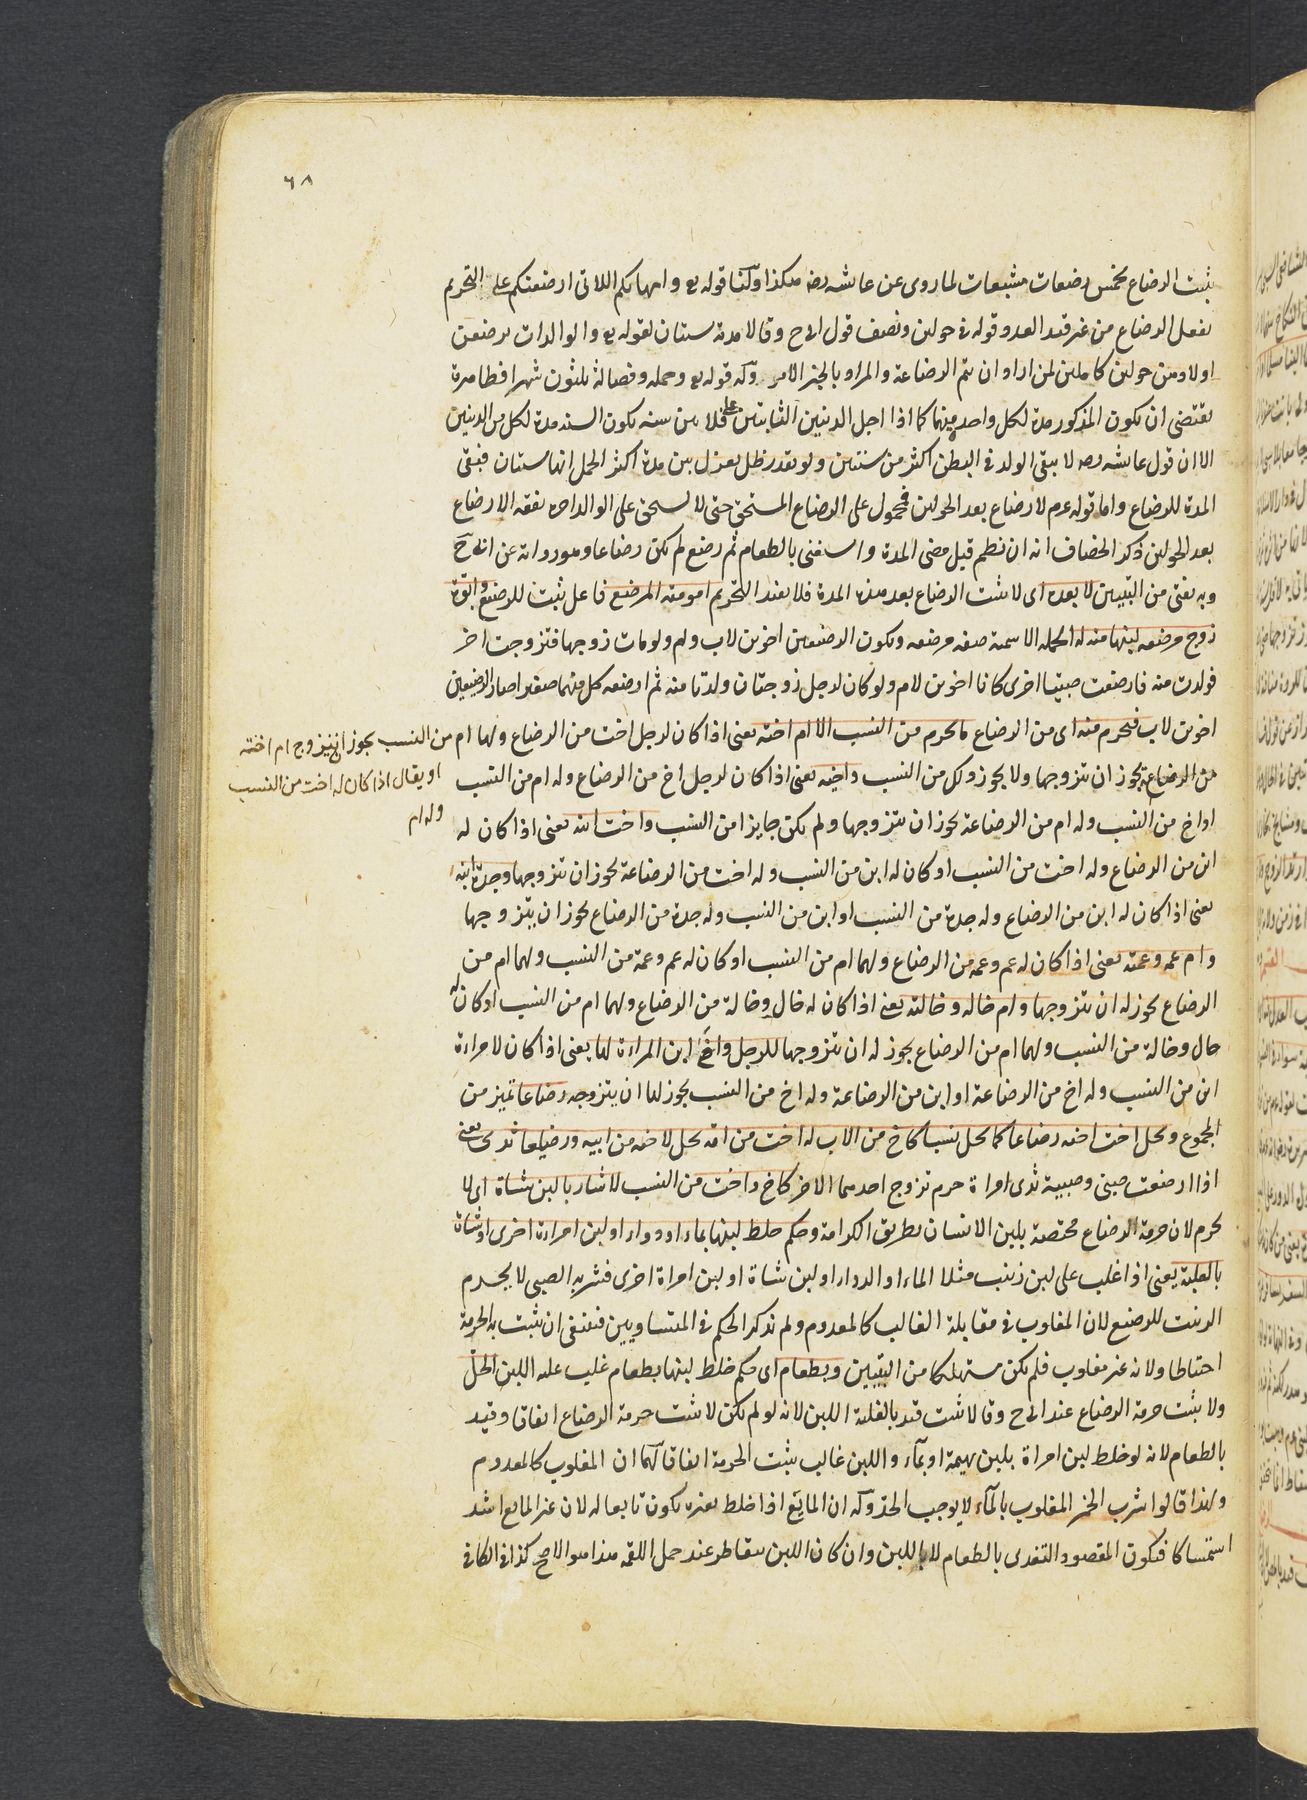 ٦٨
يثبت الرضاع بخمس رضعات مشبعات لما روى عن عائشة رضه هكذا ولنا قوله تع وامهاتكم اللاتى ارضعنكم علق التحريم
بفعل الرضاع من غير قيد العدد وقوله فى حولين ونصف قول ابى ح وقالا مدته سنتان لقوله تع والوالدات يرضعن
اولادهن حولين كاملين لمن اراد ان يتم الرضاعة والمراد بالخبر الامر وله قوله تع وحمله وفصاله ثلثون شهرا فظاهره
يقتضى ان يكون المذكور مدة لكل واحد منهما كما اذا اجل الدينين الثابتين على فلان سنة يكون السنة مدة لكل من الدينين
الا ان قول عائشة رضه لا يبقى الولد فى البطن اكثر من سنتين ولو بقدر ظل مغزل بين مدة اكثر الحمل انها سنتان فبقى
المدة للرضاع واما قوله عم لا رضاع بعد الحولين فمحمول على الرضاع المستحق حتى لا يستحق على الوالد اجرة نفقة الارضاع
بعد الحولين ذكر الخصاف انه ان فطم قبل مضى المدة واستغنى بالطعام ثم رضع لم يكن رضاعا وهو رواية عن ابى ح
وبه يفتى من التبيين لا بعده اى لا يثبت الرضاع بعد هذه المدة فلا يفيد التحريم امومة المرضع فاعل يثبت للرضيع وابوة
زوج مرضعة لبنها منه له الجملة الاسمية صفة مرضعة ويكون الرضيعين اخوين لاب وام ولو مات زوجها فتزوجت اخر
فولدت منه فارضعت صبيا اخرى كانا اخوين لام ولو كان لرجل زوجتان ولدتا منه ثم ارضعه كل منهما صغيرا صار الرضيعين
اخوين لاب فيحرم منه اى من الرضاع ما يحرم من النسب الا ام اخته يعنى اذا كان لرجل اخت من الرضاع ولها ام من النسب يجوز ان يتزوج ام اخته
من الرضاعة يجوز ان يتزوجها ولا يجوز ذلك من النسب واخيه يعنى اذا كان لرجل اخ من الرضاع وله ام من النسب
او يقال اذا كان له اخت من النسب
وله ام
او اخ من النسب وله ام من الرضاعة يجوز ان يتزوجها ولم يكن جايزا من النسب واخت ابنه يعنى اذا كان له
ابن من الرضاع وله اخت من النسب او كان له ابن من النسب وله اخت من الرضاعة يجوز ان يتزوجها وجدة ابنه
يعنى اذا كان له ابن من الرضاع وله جدة من النسب او ابن من النسب وله جدة من الرضاع يجوز ان يتزوجها
وام عمه وعمته يعنى اذا كان له عم وعمة من الرضاع ولهما ام من النسب او كان له عم وعمة من النسب ولهما ام من
الرضاع يجوز له ان يتزوجها وام خاله وخالته يعنى اذا كان له خال وخالة من الرضاع ولهما ام من النسب او كان له
خال وخالة من النسب ولهما ام من الرضاع يجوز له ان يتزوجها للرجل واخ ابن المراءة لها يعنى اذا كان لامراءة
ابن من النسب وله اخ من الرضاعة او ابن من الرضاعة وله اخ من النسب يجوز لها ان يتزوجه رضاعا تميز من
المجموع وتحل اخت اخيه رضاعا كما تحل نسبا كاخ من الاب له اخت من امه تحل لاخيه من ابيه ورضيعا ثدى يعنى
اذا ارضعت صبى وصبية ثدى امراة حرم تزوج احدهما الاخر كاخ واخت من النسب لا شاربا لبن شاة اى لا
يحرم لان حرمة الرضاع مختصة بلبن الانسان بطريق الكرامة وحكم خلط لبنها بماء او دواء او لبن امراءة اخرى او شاة
بالغلبة يعنى اذا غلب على لبن زينب مثلا الماء او الدواء او لبن شاة او لبن امراة اخرى فشربه الصبى لا يحرم
الزينب للرضيع لان المغلوب فى مقابلة الغالب كالمعدوم ولم يذكر الحكم فى المتساويين فينبغى ان يثبت به الحرمة
احتياطا ولانه غير مغلوب فلم يكن مستهلكا من التبيين وبطعام اى حكم خلط لبنها بطعام غلب عليه اللبن الحل
ولا يثبت حرمة الرضاع عند ابى ح وقالا يثبت قيد بالغلبة اللبن لانه لو لم يكن لا يثبت حرمة الرضاع اتفاقا وقيد
بالطعام لانه لو خلط لبن امراة بلبن بهيمة او بماء واللبن غالب يثبت الحرمة اتفاقا لهما ان المغلوب كالمعدوم
ولهذا قالوا شرب الخمر المغلوب بالماء لا يوجب الحد وله ان المايع اذا خلط بغيره يكون تابعا له لان غير المايع اشد
استمساكا فيكون المقصود التغدى بالطعام لا باللبن وان كان اللبن يتقاطر عند حمل اللقمة هذا هو الاصح كذا فى الكافى